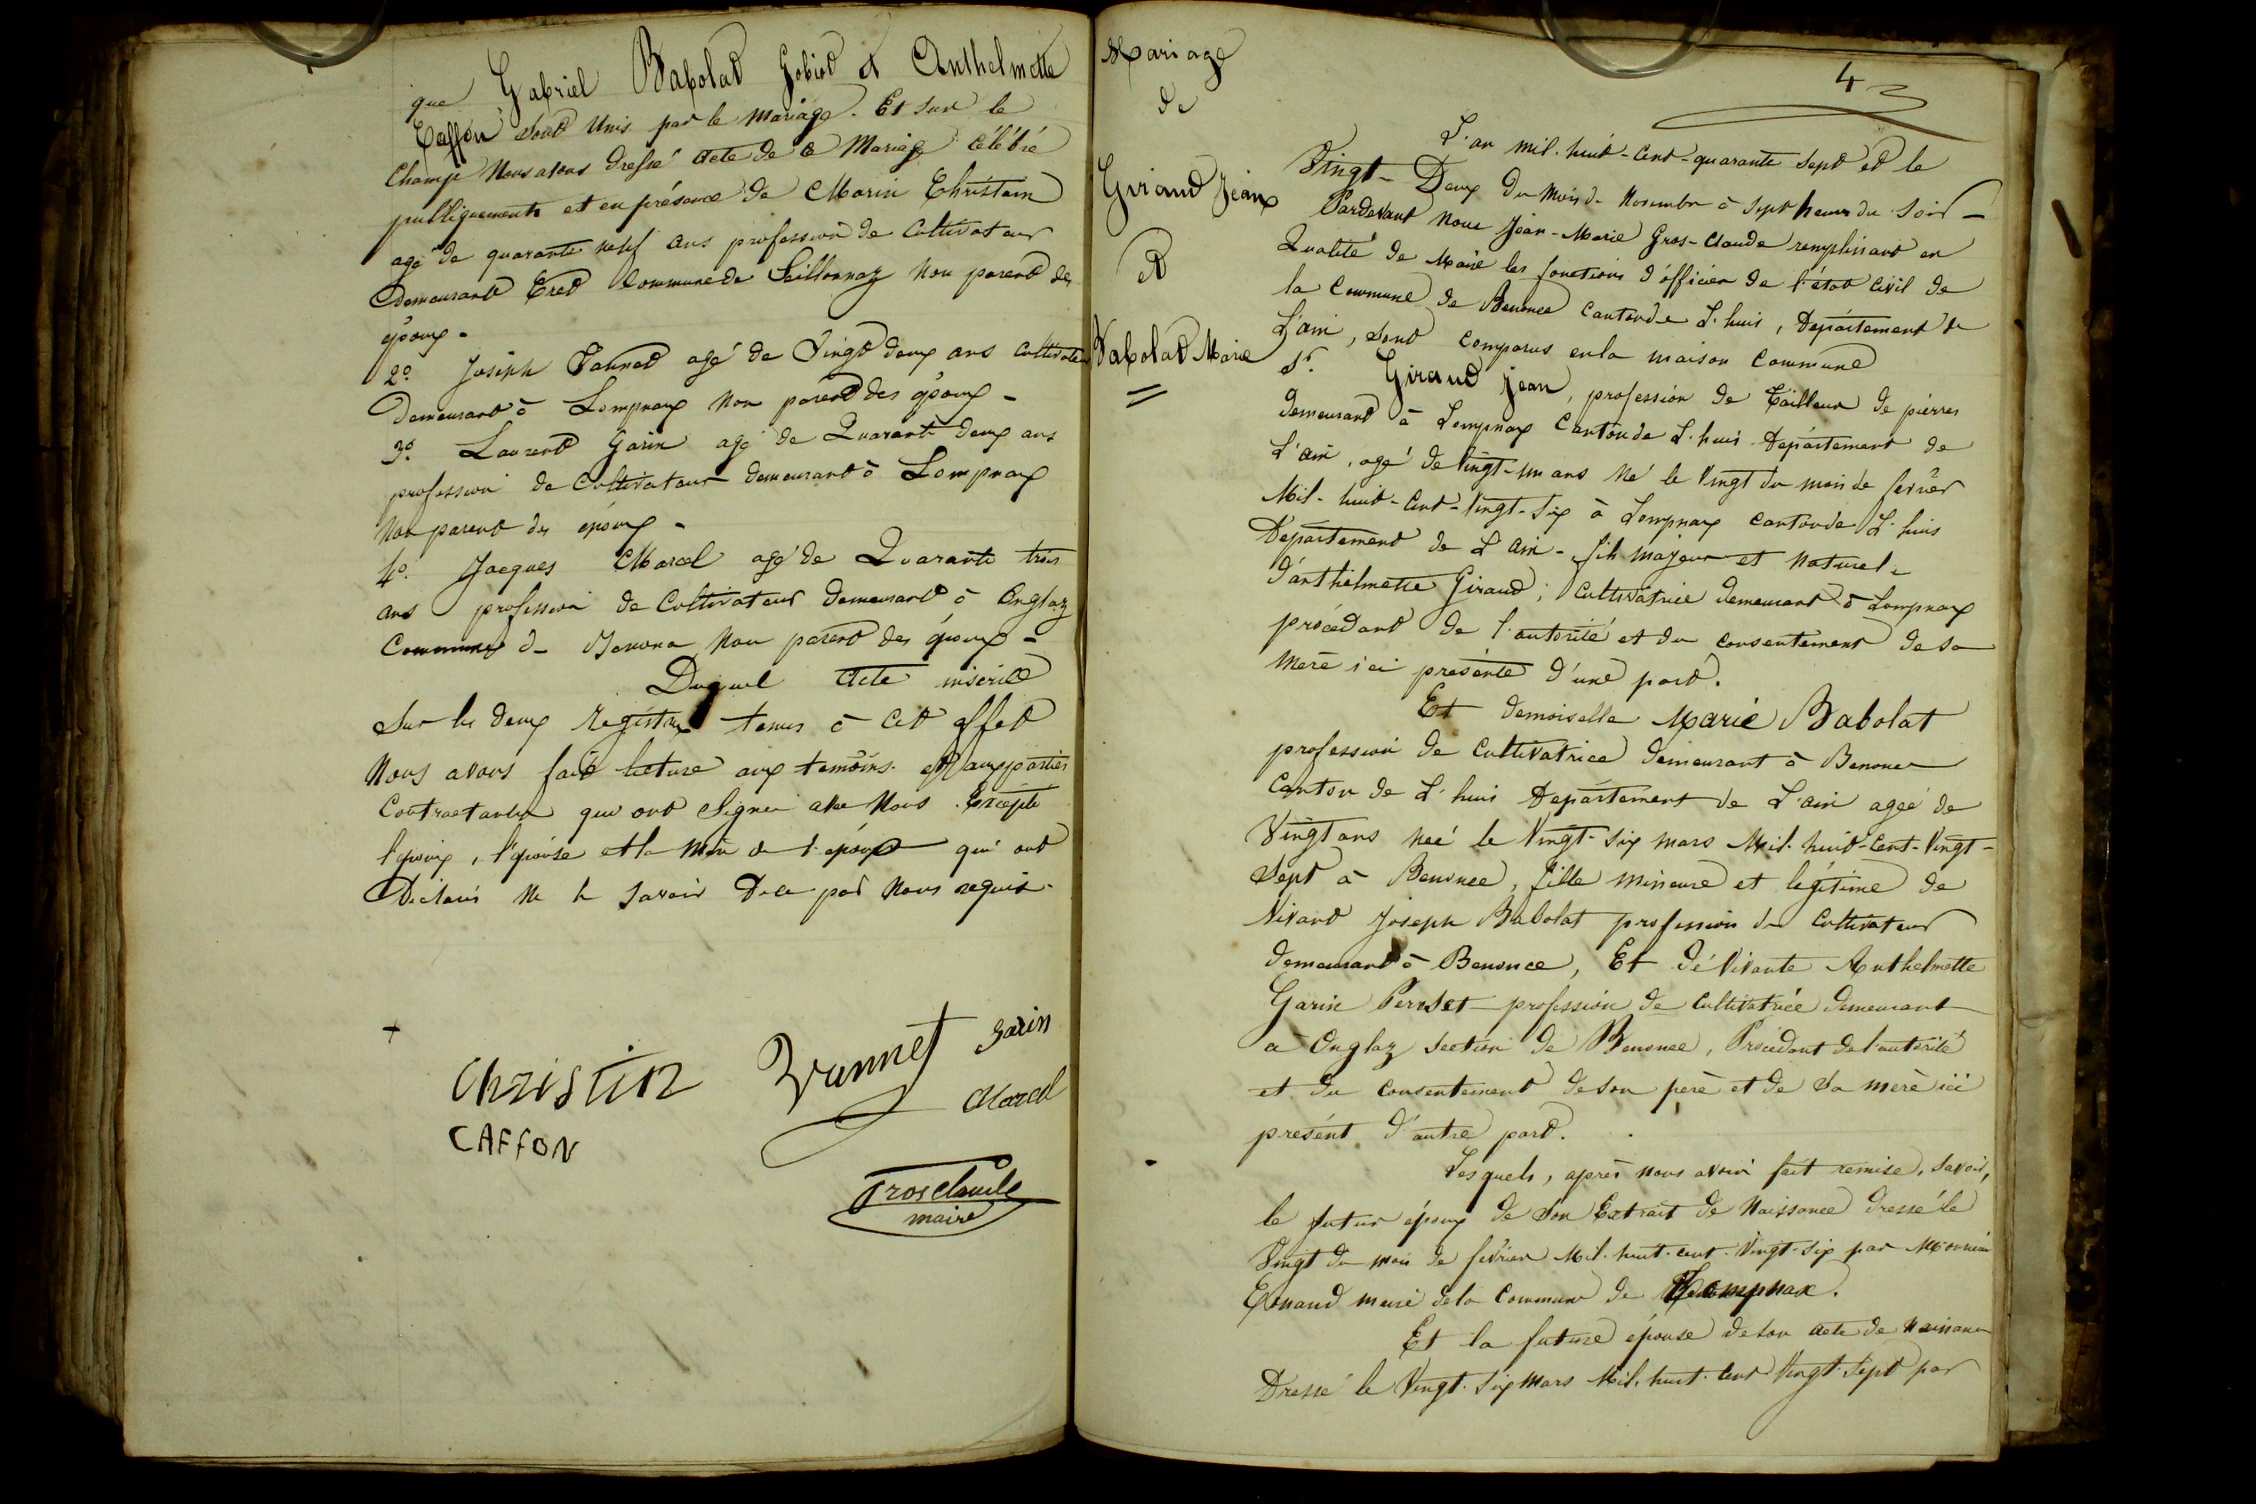 que Gabriel Babolat Gobiod et Anthelmette
Caffon sont unis par le mariage. Et sur le
Champ nous avons dressé acte de ce Mariage célébré
publiquement et en présence de Marin Christain
agé de quarante neuf ans profession de Cultivateur
demeurant Eret Commune de Seillonnaz non parent des
époux.
2º. Joseph Vannet agé de Vingt deux ans cultivateur
demeurant à Lompnax non parent des époux -
3º. Laurent Garin agé de Quarante deux ans
profession de Cultivateur demeurant à Lompnax
non parent des époux -
4º. Jacques Marcel agé de Quarante trois
ans profession de Cultivateur demeurant à Onglaz
Commune de Benonce non parent des époux -
Duquel Acte inscrit
Sur les deux Registres tenus à cet effet
Nous avons fait lecture aux temoins et aux parties
Contractantes qui ont Signer avec Nous Excepté
l'époux, l'épouse et la Mère de l'époux qui ont
Déclarés ne le savoir De ce par nous requis.
+
Christin
Vannet
Garin
CAFFON
Marcel
Grosclaude
maire
Mariage
de
Giraud Jean
Et
Babolat Marie
=
4
L'an mil-huit-cent-quarante sept et le
Vingt-Deux du mois de Novembre à sept heures du soir -
Pardevant nous Jean-Marie Gros-Claude remplissant en
Qualité de Maire les fonctions d'officier de l'état civil de
la Commune de Benonce Canton de L'huis, Département de
L'ain, sont comparus en la maison Commune
Sr. Giraud Jean, profession de Tailleur de pierres
demeurant à Lompnax Canton de L'huis Département de
L'ain, agé de Vingt-un ans né le Vingt du mois de fevrier
Mil-huit-Cent-Vingt-Six à Lompnax canton de L'huis
Département de L'ain - fils majeur et naturel.
d'anthelmette Giraud; Cultivatrice demeurant à Lompnax
procédant de l'autorité et du consentement de sa
mere ici présente d'une part.
Et demoiselle Marie Babolat
profession de Cultivatrice demeurant à Benonce
Canton de L'huis Département de L'ain agée de
Vingt ans neé le Vingt-Six mars Mil-huit-Cent-Vingt-
Sept à Benonce, fille mineure et légitime de
Vivant Joseph Babolat profession de Cultivateur
demeurant à Benonce, Et de Vivante Anthelmette
Garin Perrset profession de Cultivatrice demeurant
à Onglaz Section de Benonce, Procédant de l'autorité
et du consentement de son père et de Sa mere ici
présent d'autre part.
Lesquels, après nous avoir fait remise, savoir,
le futur époux de son Extrait de Naissance dressé le
Vingt du mois de fevrier Mil-huit-cent-Vingt-Six par
maire de la Commune de Lompnax.
Et la future épouse de son acte de naissance
Dressé le Vingt-Six Mars Mil-huit-cent Vingt Sept par